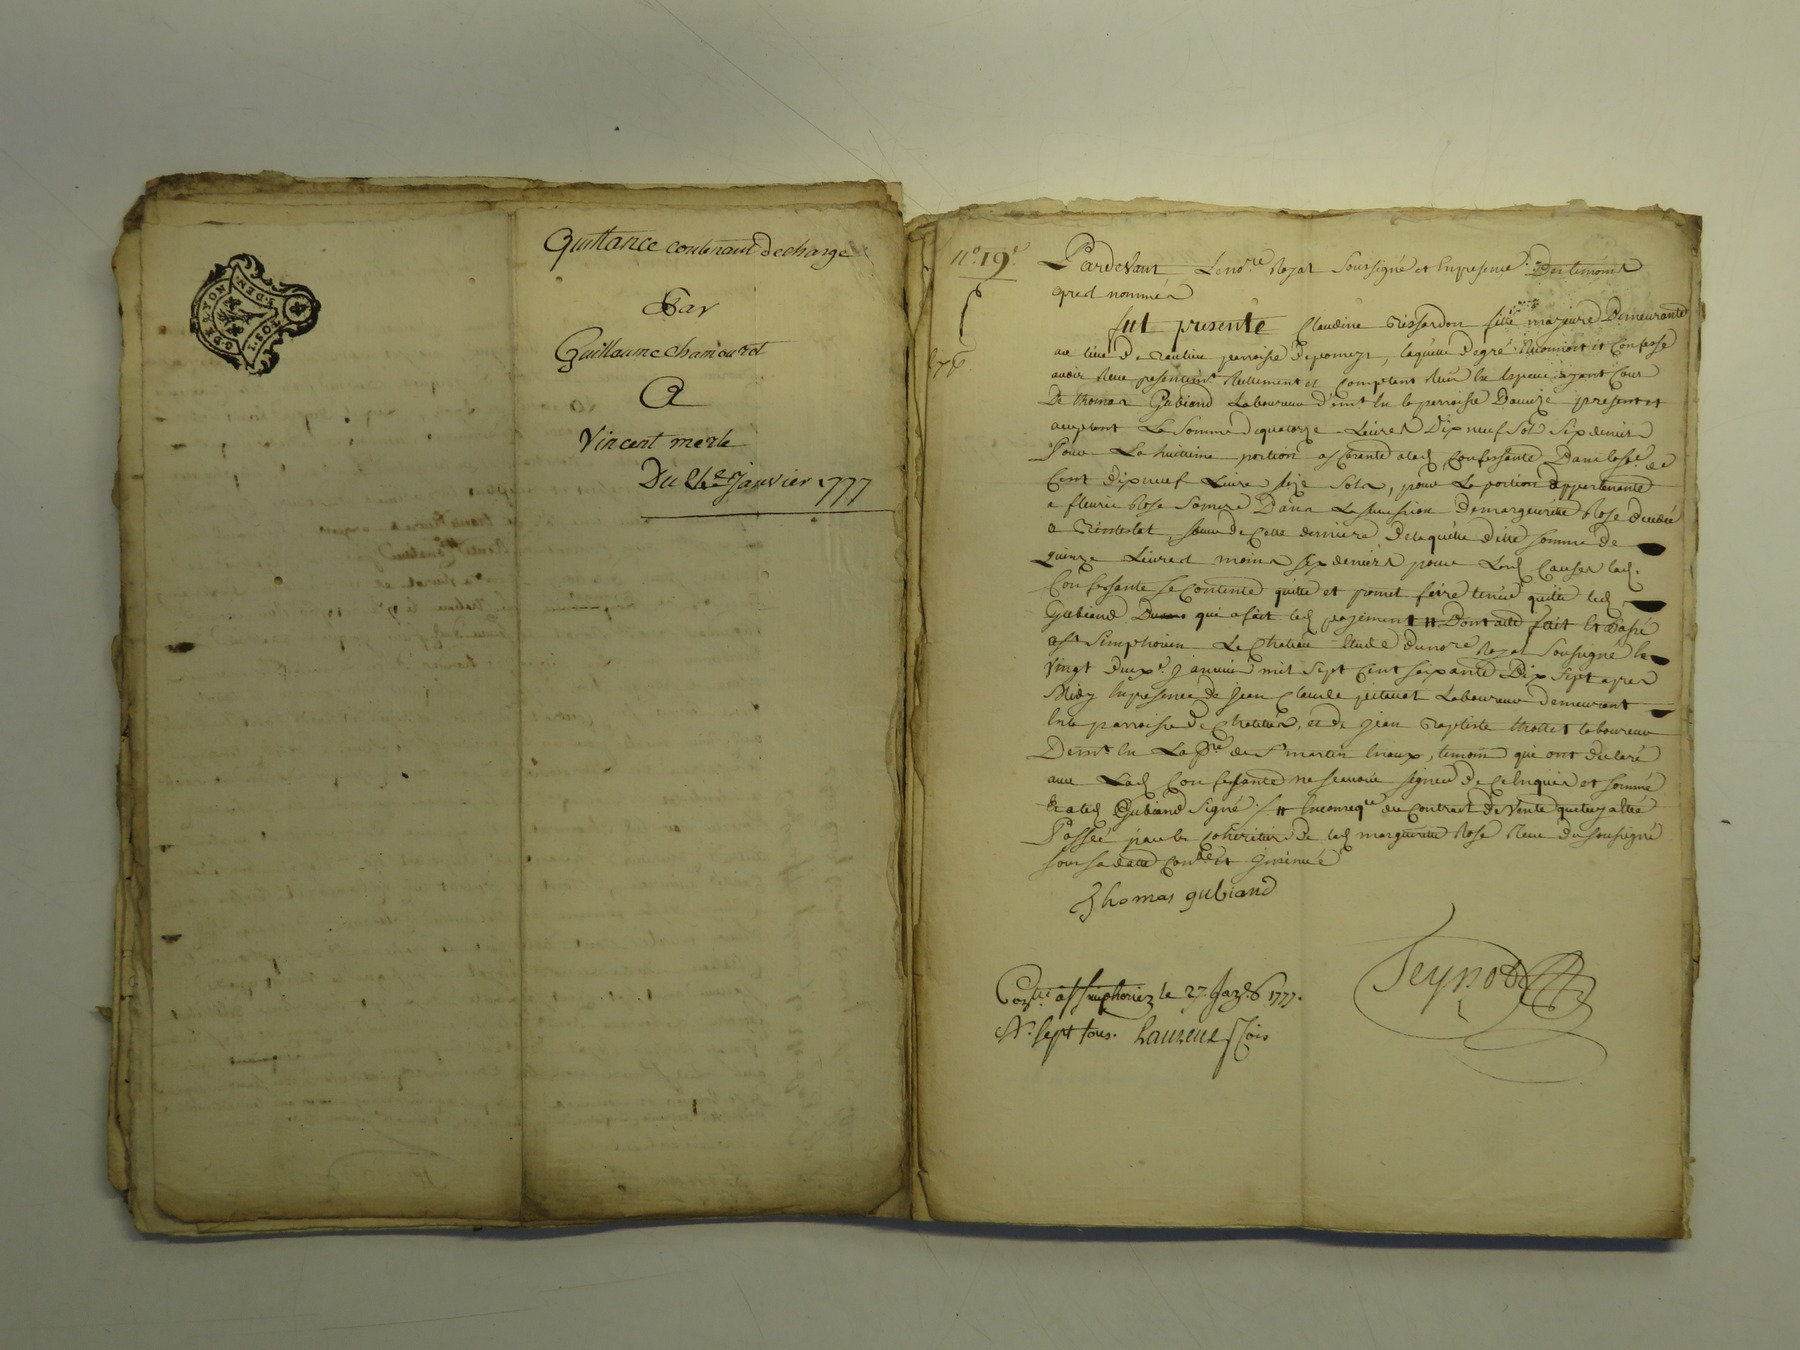 Quittance contenant decharge
Par
Guillaume chamouret
A
Vincent merle
Du 21e Janvier 1777
n° 19e
Pardevant Le no.re Royal soussigné et en presence des temoins
apres nommés
fut presente Claudine fille majeure Demeurante
au lieu de parroisse de pomeys, laquelle de gré Reconnoit et Confesse
avoir Receu presentemt Reellement et Comptant en Espece ayant Cours
De thomas Gubiand Laboureur demt En la parroisse Daueize present et
acceptant La somme de quatorze Livres Dix neuf Sols Six deniers
Pour La huitieme portion a lad Confessante Dans de
Cent dix neuf Livre seize Sols, pour La portion appartenante
a fleurie Rose Sa mere Dans La succession de margueritte Rose
a soeur de Cette derniere, De laquelle ditte somme de
quinze Livres moins six deniers pour Lesd Causes lad.
Confessante se Contente quitte et promet faire tenir quitte led
Gubiand qui a fait led payement Dont acte fait et Passé
a St Simphorien Le Chateau Etude du no.re Royal Soussigné le
Vingt deuxe Janvier mil sept Cent soixante Dix Sept apres
Midy En presence de Jean Claude Laboureur demeurant
En la parroisse de et de Jean Baptiste laboureur
Demt En La Pse de St martin temoins qui ont declaré
avec Lad Confessante ne scavoir signer de Ce Enquis et sommé
Gubiand Signé au Contract de Vente
Passée par les Coheritiers De lad margueritte Rose Receu du soussigné
sous sa datte
Thomas gubiand
Teynot
le 27. 1777.
R. sept sous.